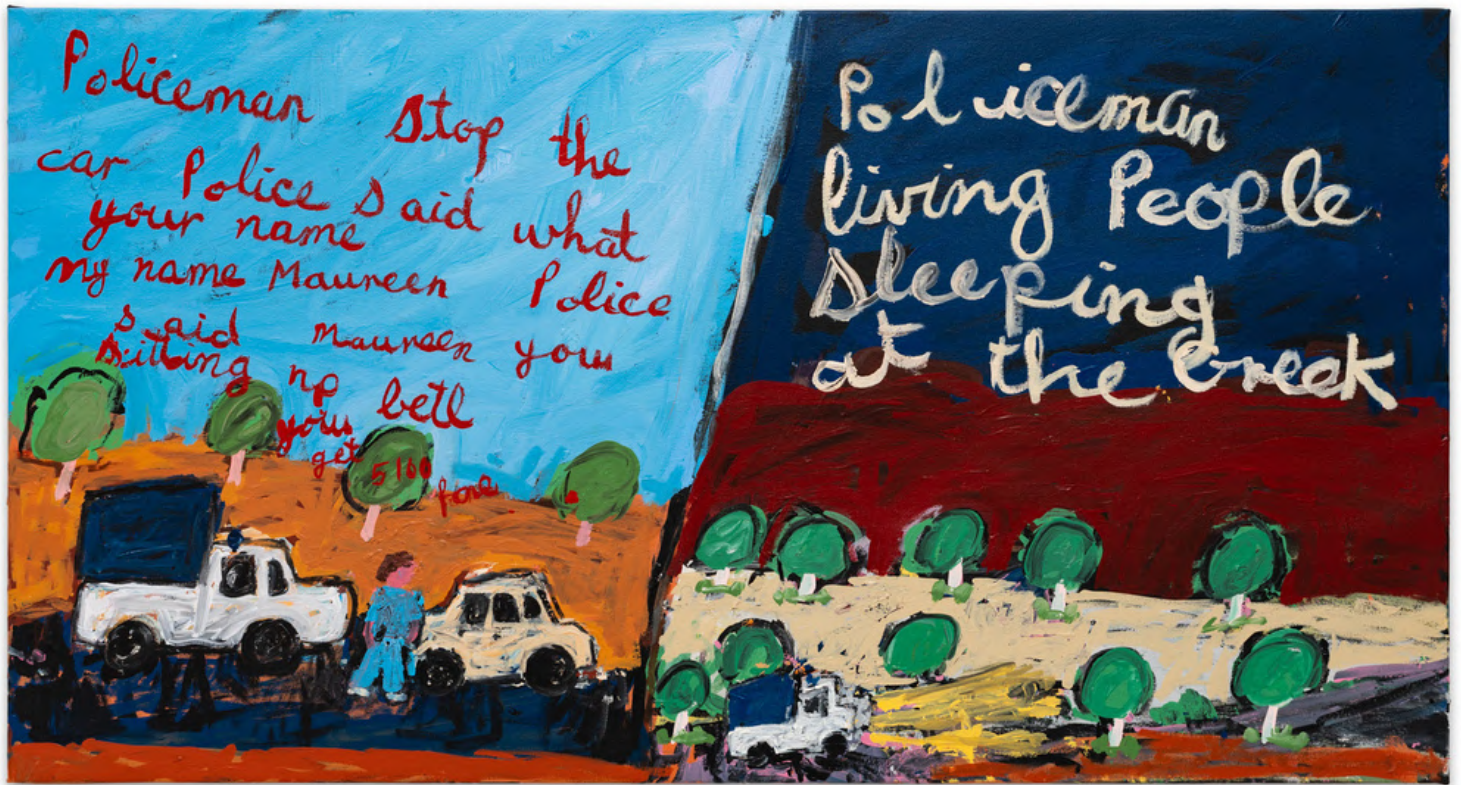 Policeman Stop the
car Police Said what
your name
my name Maureen Police
said maureen you
sitting np betl
you
get
5160
fone
Policeman
living People
sleeping
at the creek